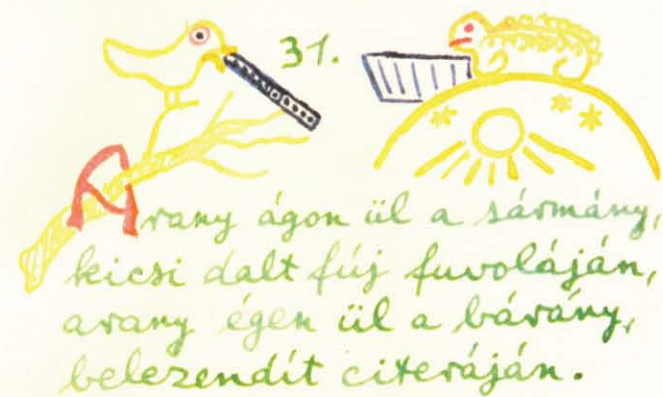 31.
Arany ágon ül a sármány,
kicsi dalt fúj fuvoláján,
arany égen ül a bárány,
belezendít citeráján.